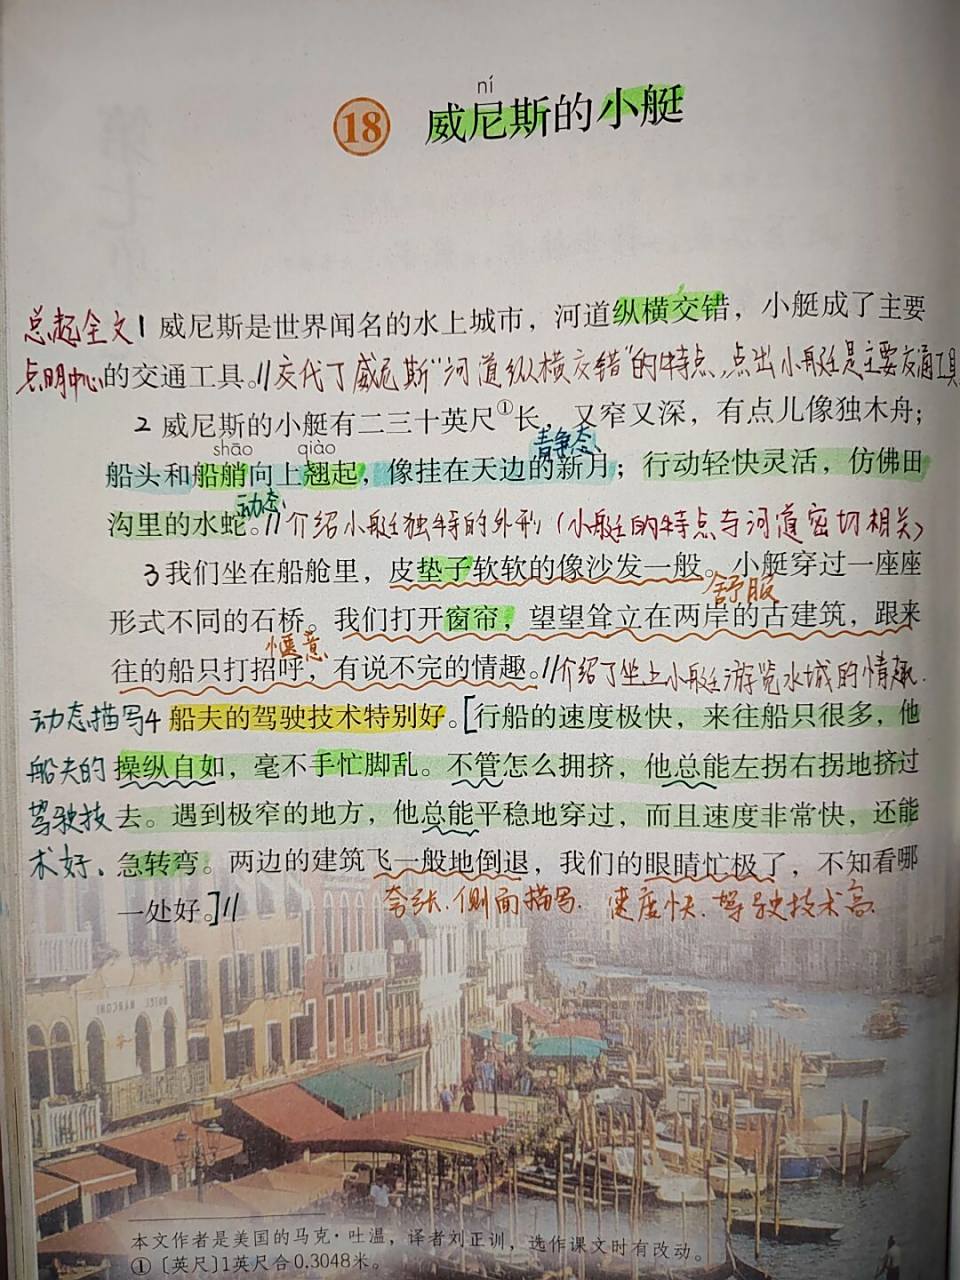 ní
18 威尼斯的小艇
总起全文 1 威尼斯是世界闻名的水上城市，河道纵横交错，小艇成了主要
点明中心 的交通工具。//交代了威尼斯“河道纵横交错”的特点，点出小艇是主要交通工具
2 威尼斯的小艇有二三十英尺①长，又窄又深，有点儿像独木舟；
shāo qiào 静态
船头和船艄向上翘起，像挂在天边的新月；行动轻快灵活，仿佛田
动态
沟里的水蛇。//介绍小艇独特的外形（小艇的特点与河道密切相关）
3 我们坐在船舱里，皮垫子软软的像沙发一般。小艇穿过一座座
舒服
形式不同的石桥。我们打开窗帘，望望耸立在两岸的古建筑，跟来
惬意
往的船只打招呼，有说不完的情趣。//介绍了坐上小艇游览水城的情趣.
动态描写 4 船夫的驾驶技术特别好。[行船的速度极快，来往船只很多，他
船夫的 操纵自如，毫不手忙脚乱。不管怎么拥挤，他总能左拐右拐地挤过
驾驶技 去。遇到极窄的地方，他总能平稳地穿过，而且速度非常快，还能
术好、 急转弯。两边的建筑飞一般地倒退，我们的眼睛忙极了，不知看哪
一处好。]// 夸张.侧面描写. 速度快.驾驶技术高
本文作者是美国的马克·吐温，译者刘正训，选作课文时有改动。
①〔英尺〕1英尺合0.3048米。